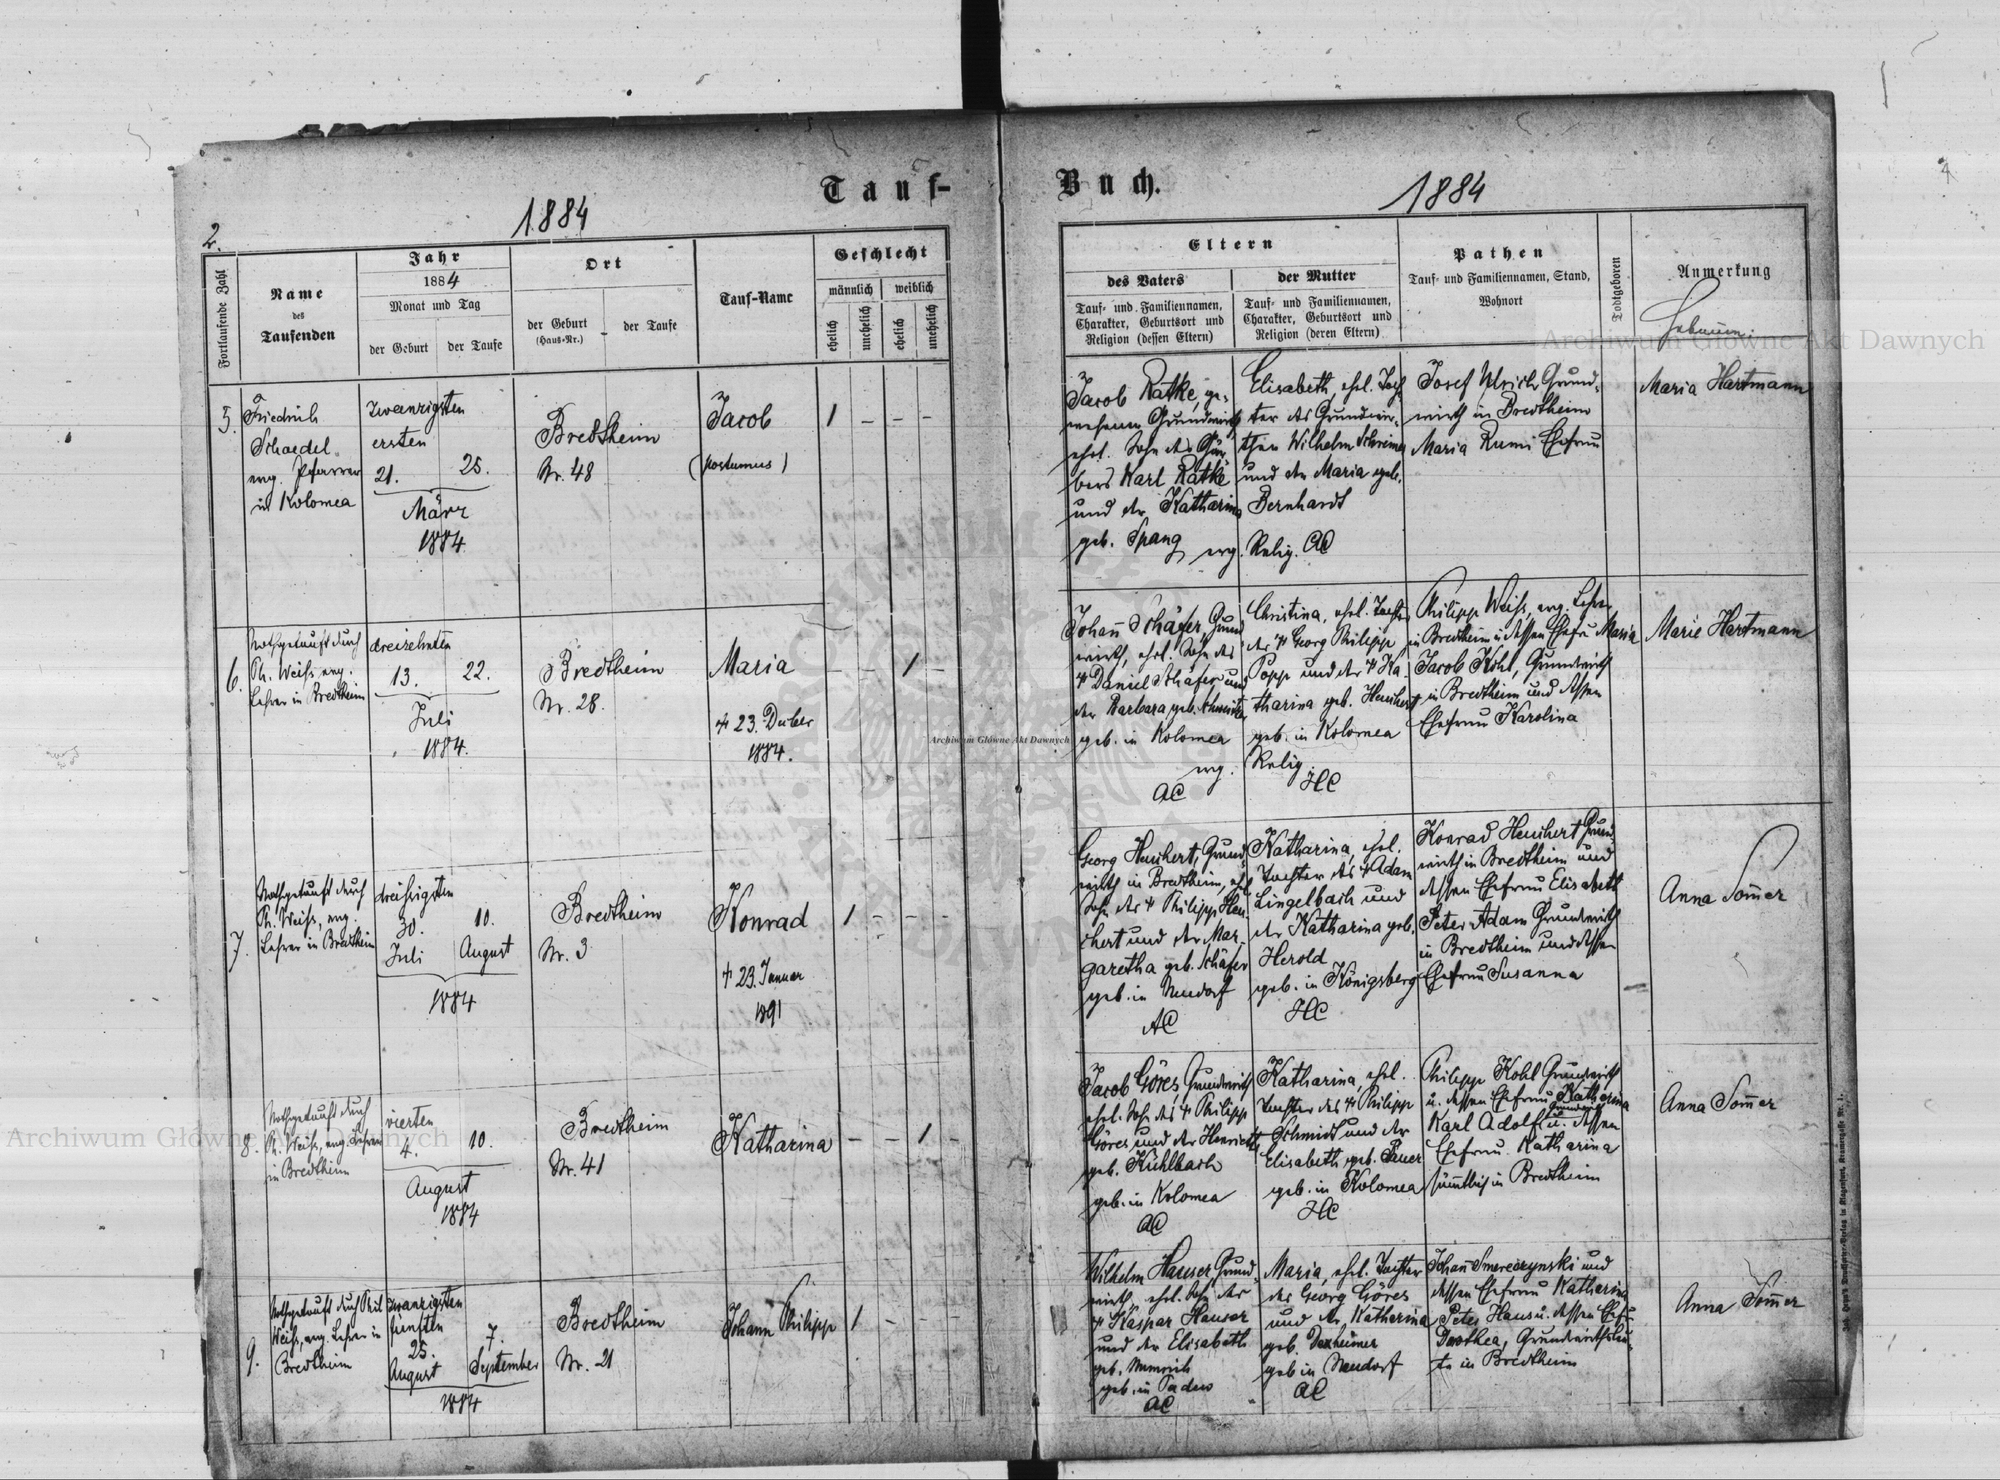 Tauf-
Buch.
1884
1884
2.
Fortlaufende Zahl
Name
des
Taufenden
Jahr
1884
Monat und Tag
der Geburt
der Taufe
Ort
der Geburt
(Haus-Nr.)
der Taufe
Tauf-Name
Geschlecht
männlich
weiblich
ehelich
unehelich
ehelich
unehelich
Eltern
des Vaters
Tauf- und Familiennamen,
Charakter, Geburtsort und
Religion (dessen Eltern)
der Mutter
Tauf- und Familiennamen,
Charakter, Geburtsort und
Religion (deren Eltern)
Pathen
Tauf- und Familiennamen, Stand,
Wohnort
Todtgeboren
Anmerkung
5.
Friedrich
Schaedel
evg. Pfarrer
in Kolomea
ersten
21.
25.
März
1884
Bredtheim
Nr. 48
Jacob
(postumus)
1 – – –
Jacob Ratke, ge-
wesener Grundwirth
ehel. Sohn des
Karl Ratke
und der Katharina
geb. Spang
Elisabeth, ehel. Toch-
ter des Grundwir-
then Wilhelm Schreiner
und der Maria geb.
Bernhardt
evg. Relig. AC
Josef Ulrich Grund-
wirth in Bredtheim
Maria Rumi Ehefrau
Maria Hartmann
6.
Nothgetauft durch
Ph. Weiss, evg.
Lehrer in Bredtheim
dreizehnten
13.
22.
Juli
1884.
Bredtheim
Nr. 28.
Maria
+ 23. Dcber
1884.
– – 1 –
Johañ Schäfer, Grund
wirth, ehel. Sohn des
+ Daniel Schäfer und
der Barbara geb.
geb. in Kolomea
evg.
AC
Christina, ehel. Tochter
des + Georg Philipp
Popp und der + Ka-
tharina geb. Heuchert
geb. in Kolomea
Relig.
HC
Philipp Weiss, evg. Lehrer
in Bredtheim u. dessen Ehefrau Maria
Jacob Kohl, Grundwirth
in Bredtheim und dessen
Ehefrau Karolina
Marie Hartmann
7.
Nothgetauft durch
Ph. Weiss, evg.
Lehrer in Bredtheim
dreissigsten
30.
10.
Juli
August
1884
Bredtheim
Nr. 3
Konrad
+ 23. Januar
1891
1 – – –
Georg Heuchert, Grund-
wirth in Bredtheim, ehel
Sohn des + Philipp Heu-
chert und der Mar-
garetha geb. Schäfer
geb. in Neudorf
AC
Katharina, ehel.
Tochter des + Adam
Lingelbach und
der Katharina geb.
Herold
geb. in Königsberg
HC
Konrad Heuchert Grund-
wirth in Bredtheim und
dessen Ehefrau Elisabeth
Peter Adam Grundwirth
in Bredtheim und dessen
Ehefrau Susanna
Anna Som̃er
8.
Nothgetauft durch
Ph. Weiss, evg. Lehrer
in Bredtheim
vierten
4.
10.
August
1884
Bredtheim
Nr. 41
Katharina
– – 1 –
Jacob Göres, Grundwirth
ehel. Sohn des + Philipp
Göres und der Henriette
geb. Kühlbach
geb. in Kolomea
AC
Katharina, ehel.
Tochter des + Philipp
Schmidt und der
Elisabeth geb. Bauer
geb. in Kolomea
HC
Philipp Kohl Grundwirth
u. dessen Ehefrau Katharina
Grundwirth
Karl Adolf u. dessen
Ehefrau Katharina
säm̃tlich in Bredtheim
Anna Som̃er
9.
Nothgetauft durch Phil.
Weiss, evg. Lehrer in
Bredtheim
25.
7.
August
September
1884
Bredtheim
Nr. 21
Johann Philipp
1 – – –
Wilhelm Hauser Grund-
wirth, ehel. Sohn des
+ Kaspar Hauser
und der Elisabeth
geb.
geb. in
AC
Maria, ehel. Tochter
des Georg Göres
und der Katharina
geb. Dexheimer
geb in Neudorf
AC
Johañ Smereczynski und
dessen Ehefrau Katharina
Peter Haus u. dessen Ehefr.
Dorothea, Grundwirthsleu-
te in Bredtheim
Anna Som̃er
Archiwum Główne Akt Dawnych
Archiwum Główne Akt Dawnych
Archiwum Główne Akt Dawnych